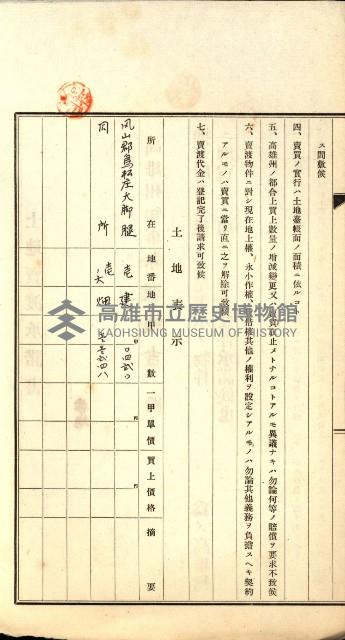 ス間敷候
四、賣買ノ實行ハ土地臺帳面ノ面積ニ依ルコト
五、高雄州ノ都合上買上數量ノ增減變更又ハ賣買取止メトナルコトアルモ異議ナキハ勿論何等ノ賠償ヲ要求不致候
六、賣渡物件ニ對シ現在地上權、永小作權、賃借權其他ノ權利ヲ設定シアルモノハ勿論其他義務ヲ負擔スヘキ契約
アルモノハ賣買ニ當リ直ニ之ヲ解除可致候
七、賣渡代金ハ登記完了後請求可致候
土地表示
所在 地番 地目 甲數 一甲單價 買上價格 摘要
鳳山郡鳥松庄大脚腿 壱 建 〇四弐〇
同所 壱 畑
高雄市立歷史博物館
KAOHSIUNG MUSEUM OF HISTORY